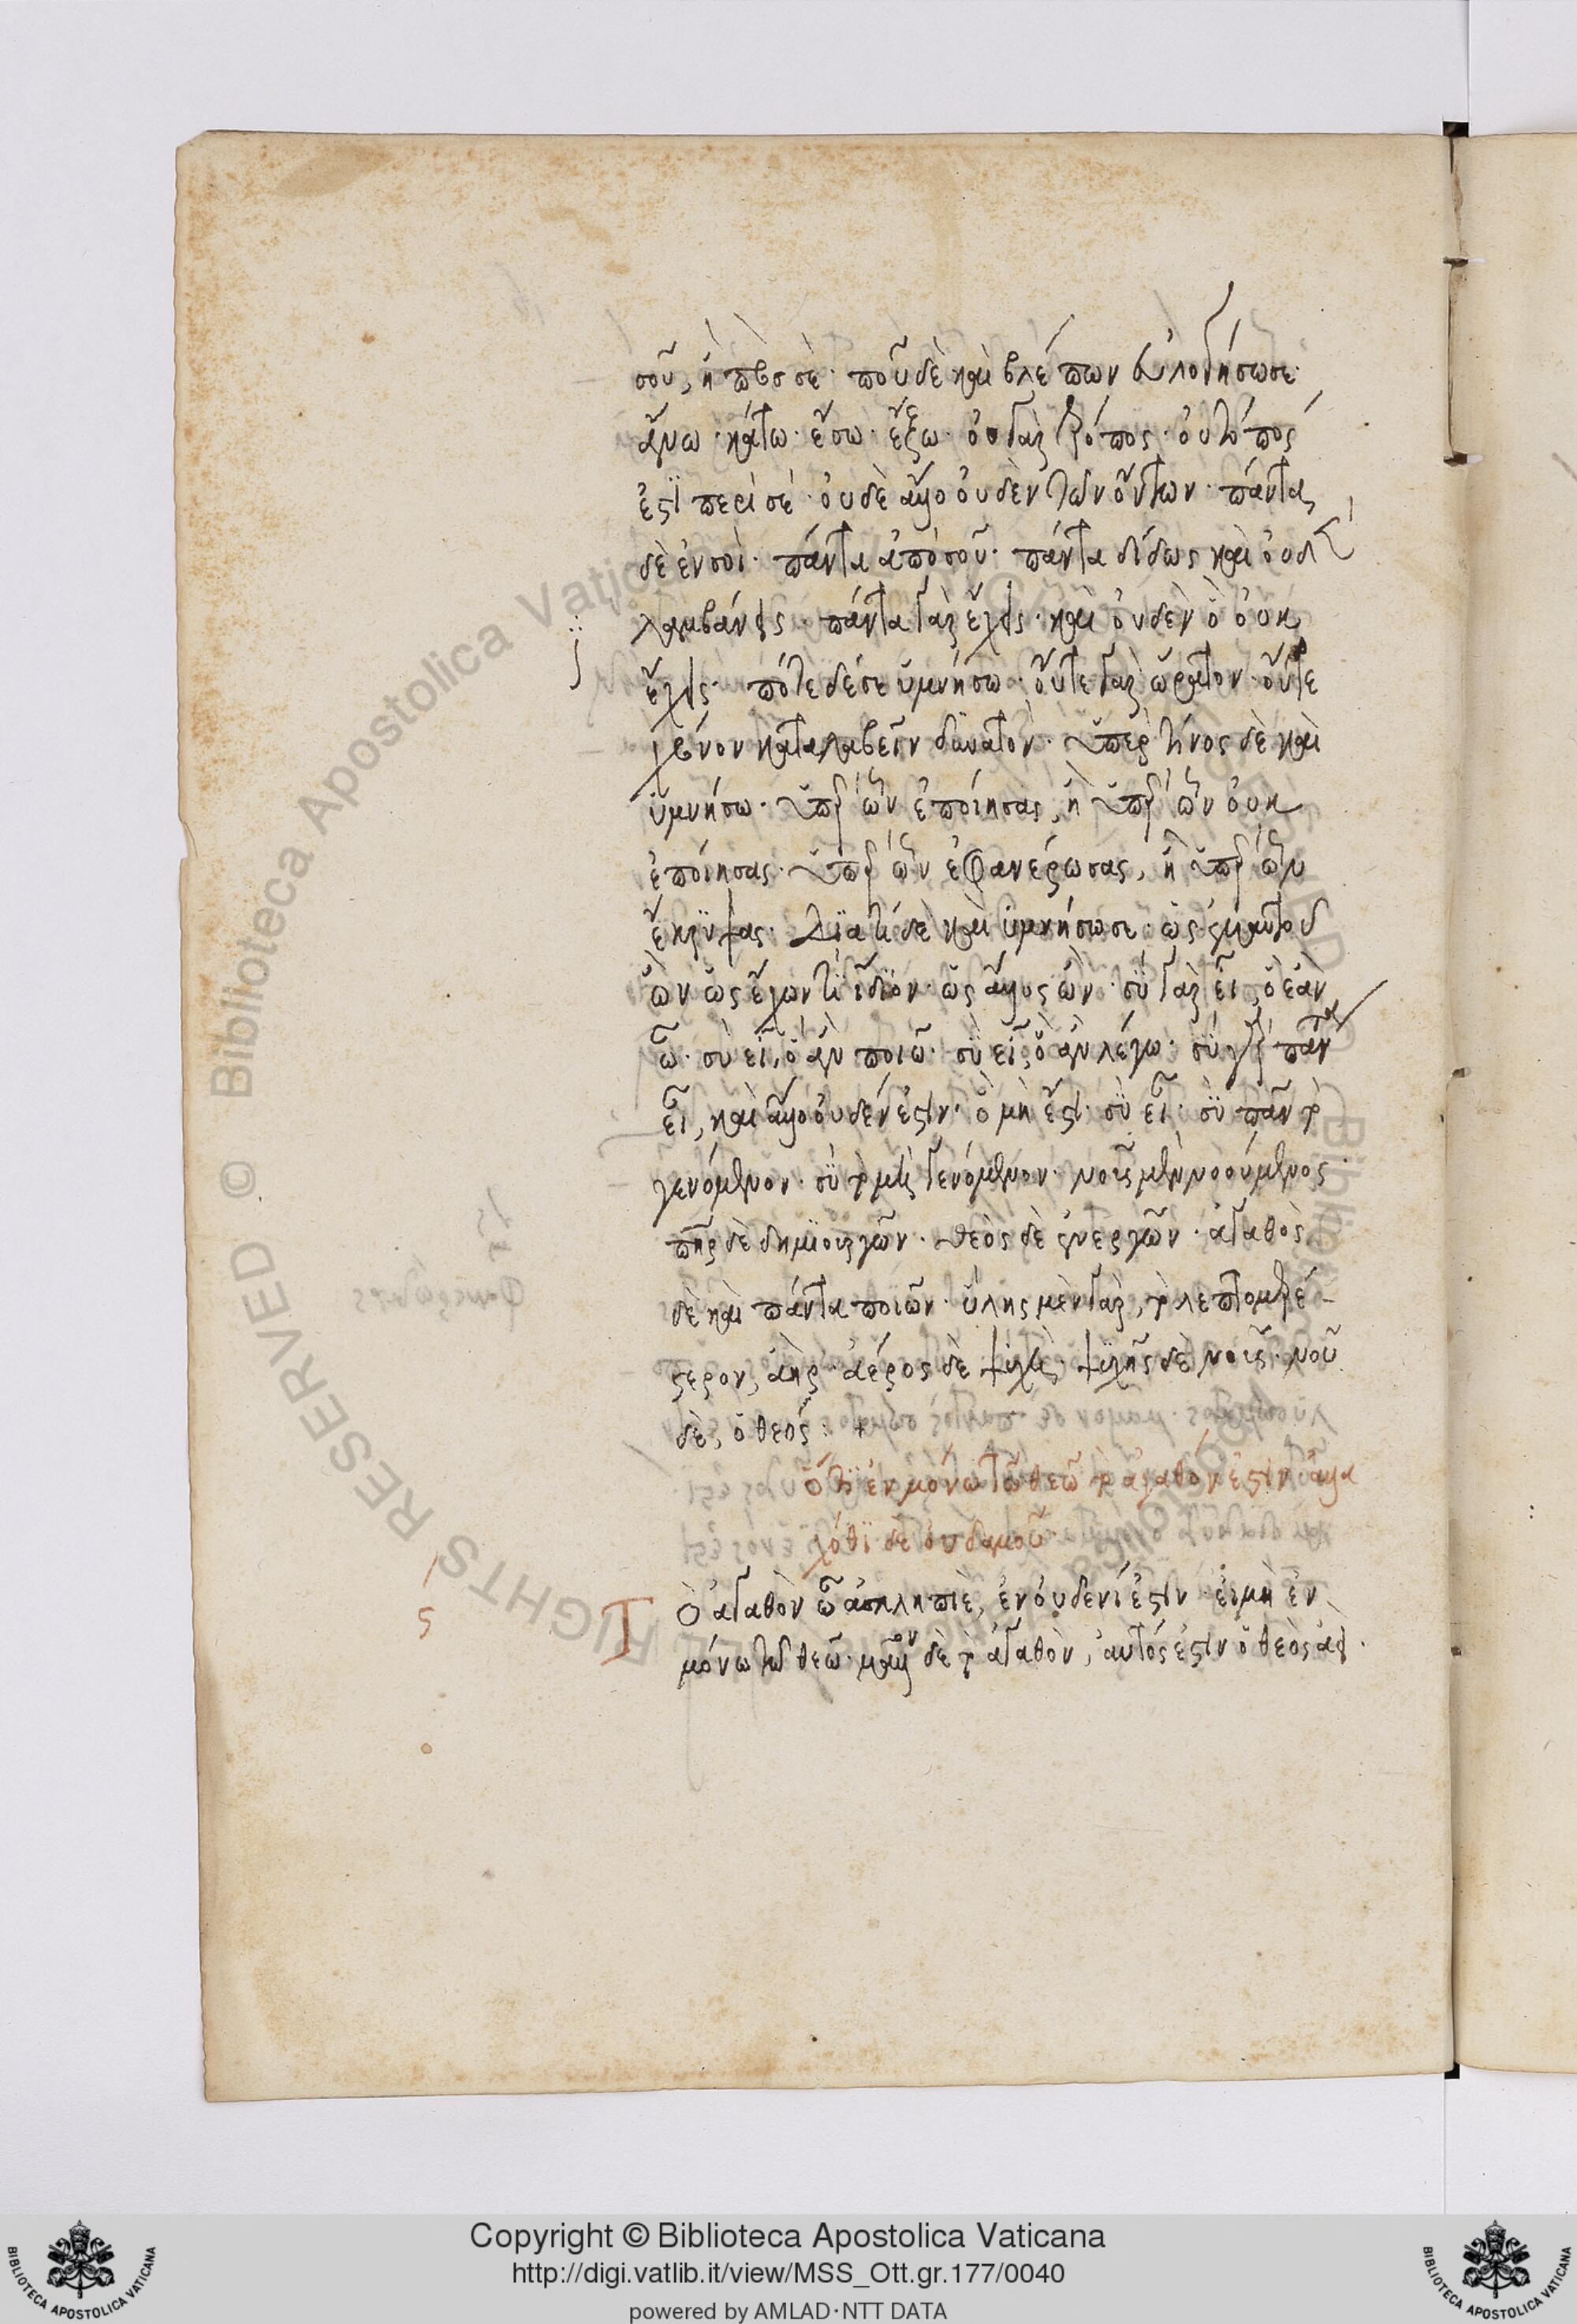 σοῦ, ἢ πρὸς σὲ· ποῦ δὲ καὶ βλέπων εὐλογήσω σε·
ἄνω· κάτω· ἔσω· ἔξω· οὐ γὰρ τρόπος· οὐ τόπος
ἐστὶ περὶ σέ· οὐδὲ ἄλλο οὐδὲν τῶν ὄντων· πάντα
δὲ ἐν σοὶ· πάντα ἀπὸ σοῦ· πάντα δίδως καὶ οὐδὲν
λαμβάνεις· πάντα γὰρ ἔχεις· καὶ οὐδὲν ὃ οὐκ
ἔχεις· πότε δέ σε ὑμνήσω· οὔτε γὰρ ὥραν σου οὔτε
χρόνον καταλαβεῖν δυνατόν· ὑπὲρ τίνος δὲ καὶ
ὑμνήσω· ὑπὲρ ὧν ἐποίησας, ἢ ὑπὲρ ὧν οὐκ
ἐποίησας· ὑπὲρ ὧν ἐφανέρωσας, ἢ ὑπὲρ ὧν
ἔκρυψας· διὰ τί δὲ καὶ ὑμνήσω σε· ὡς ἐμαυτοῦ
ὢν ὡς ἔχων τι ἴδιον· ὡς ἄλλος ὤν· σὺ γὰρ εἶ, ὃ ἐὰν
ὦ· σὺ εἶ, ὃ ἂν ποιῶ· σὺ εἶ, ὃ ἂν λέγω· σὺ γὰρ πάντα
εἶ, καὶ ἄλλο οὐδέν ἐστιν· ὃ μὴ ἔστι· σὺ εἶ· σὺ πᾶν τὸ
γενόμενον· σὺ τὸ μὴ γενόμενον· νοῦς μὲν νοούμενος·
πῆρ δὲ δημιουργῶν· θεὸς δὲ ἐνεργῶν· ἀγαθὸς
δὲ καὶ πάντα ποιῶν· ὕλης μὲν γὰρ, τὸ λεπτομερέ-
στερον, ἀὴρ· ἀέρος δὲ ψυχὴ· ψυχῆς δὲ νοῦς· νοῦ
δὲ, ὁ θεός: +
Ὅτι ἐν μόνῳ τῷ θεῷ τὸ ἀγαθόν ἐστιν ἀλλα
χόθι δὲ οὐδαμοῦ·
Τ Ὸ ἀγαθὸν ὦ ἀσκληπιὲ, ἐν οὐδενί ἐστιν· εἰ μὴ ἐν
μόνω τῶ θεῶ· μᾶλλον δὲ τὸ ἀγαθὸν, αὐτός ἐστιν ὁ θεὸς ἀεί·
Copyright © Biblioteca Apostolica Vaticana
http://digi.vatlib.it/view/MSS_Ott.gr.177/0040
powered by AMLAD·NTT DATA